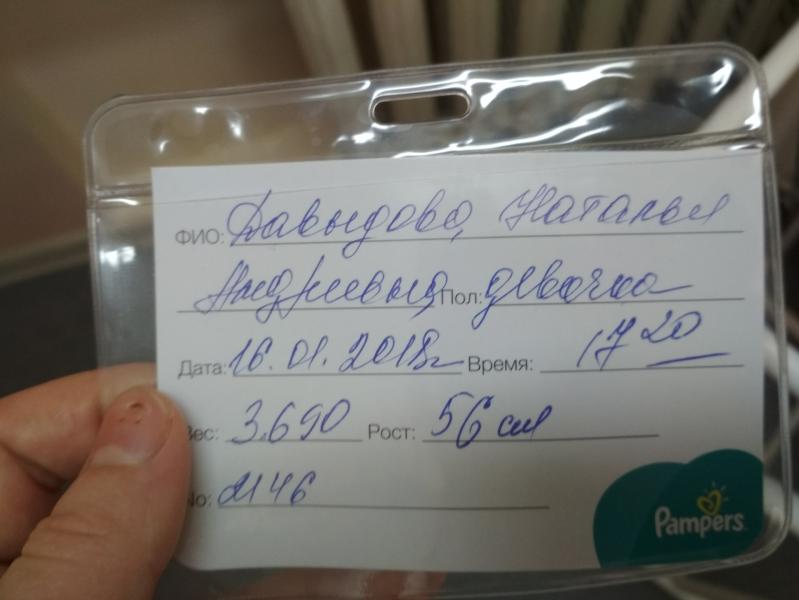 ФИО: Давыдова, Наталья
Андреевна, Пол: девочка
Дата: 16.01.2018г Время: 17 20
Вес: 3.690 Рост: 56 см
No: 46
Pampers